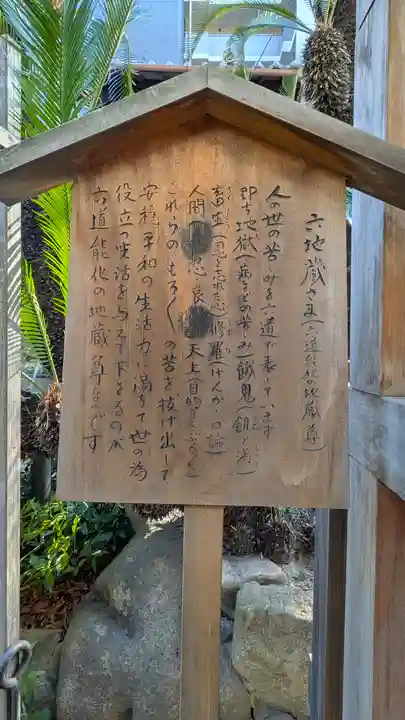 六地蔵さま(六道能化の地蔵尊)
人の世の苦しみを六道で表しています
即ち地獄(病などの苦み)餓鬼(飢と渇)
畜生(恩を忘れた心)修羅(けんか・口論)
人間(悲哀)天上(目的なく
これらのもろ〱の苦を抜け出して
安穏平和の生活力に満ちて世の為
役立つ生活を与え下さるのが
六道能化の地蔵尊なのです